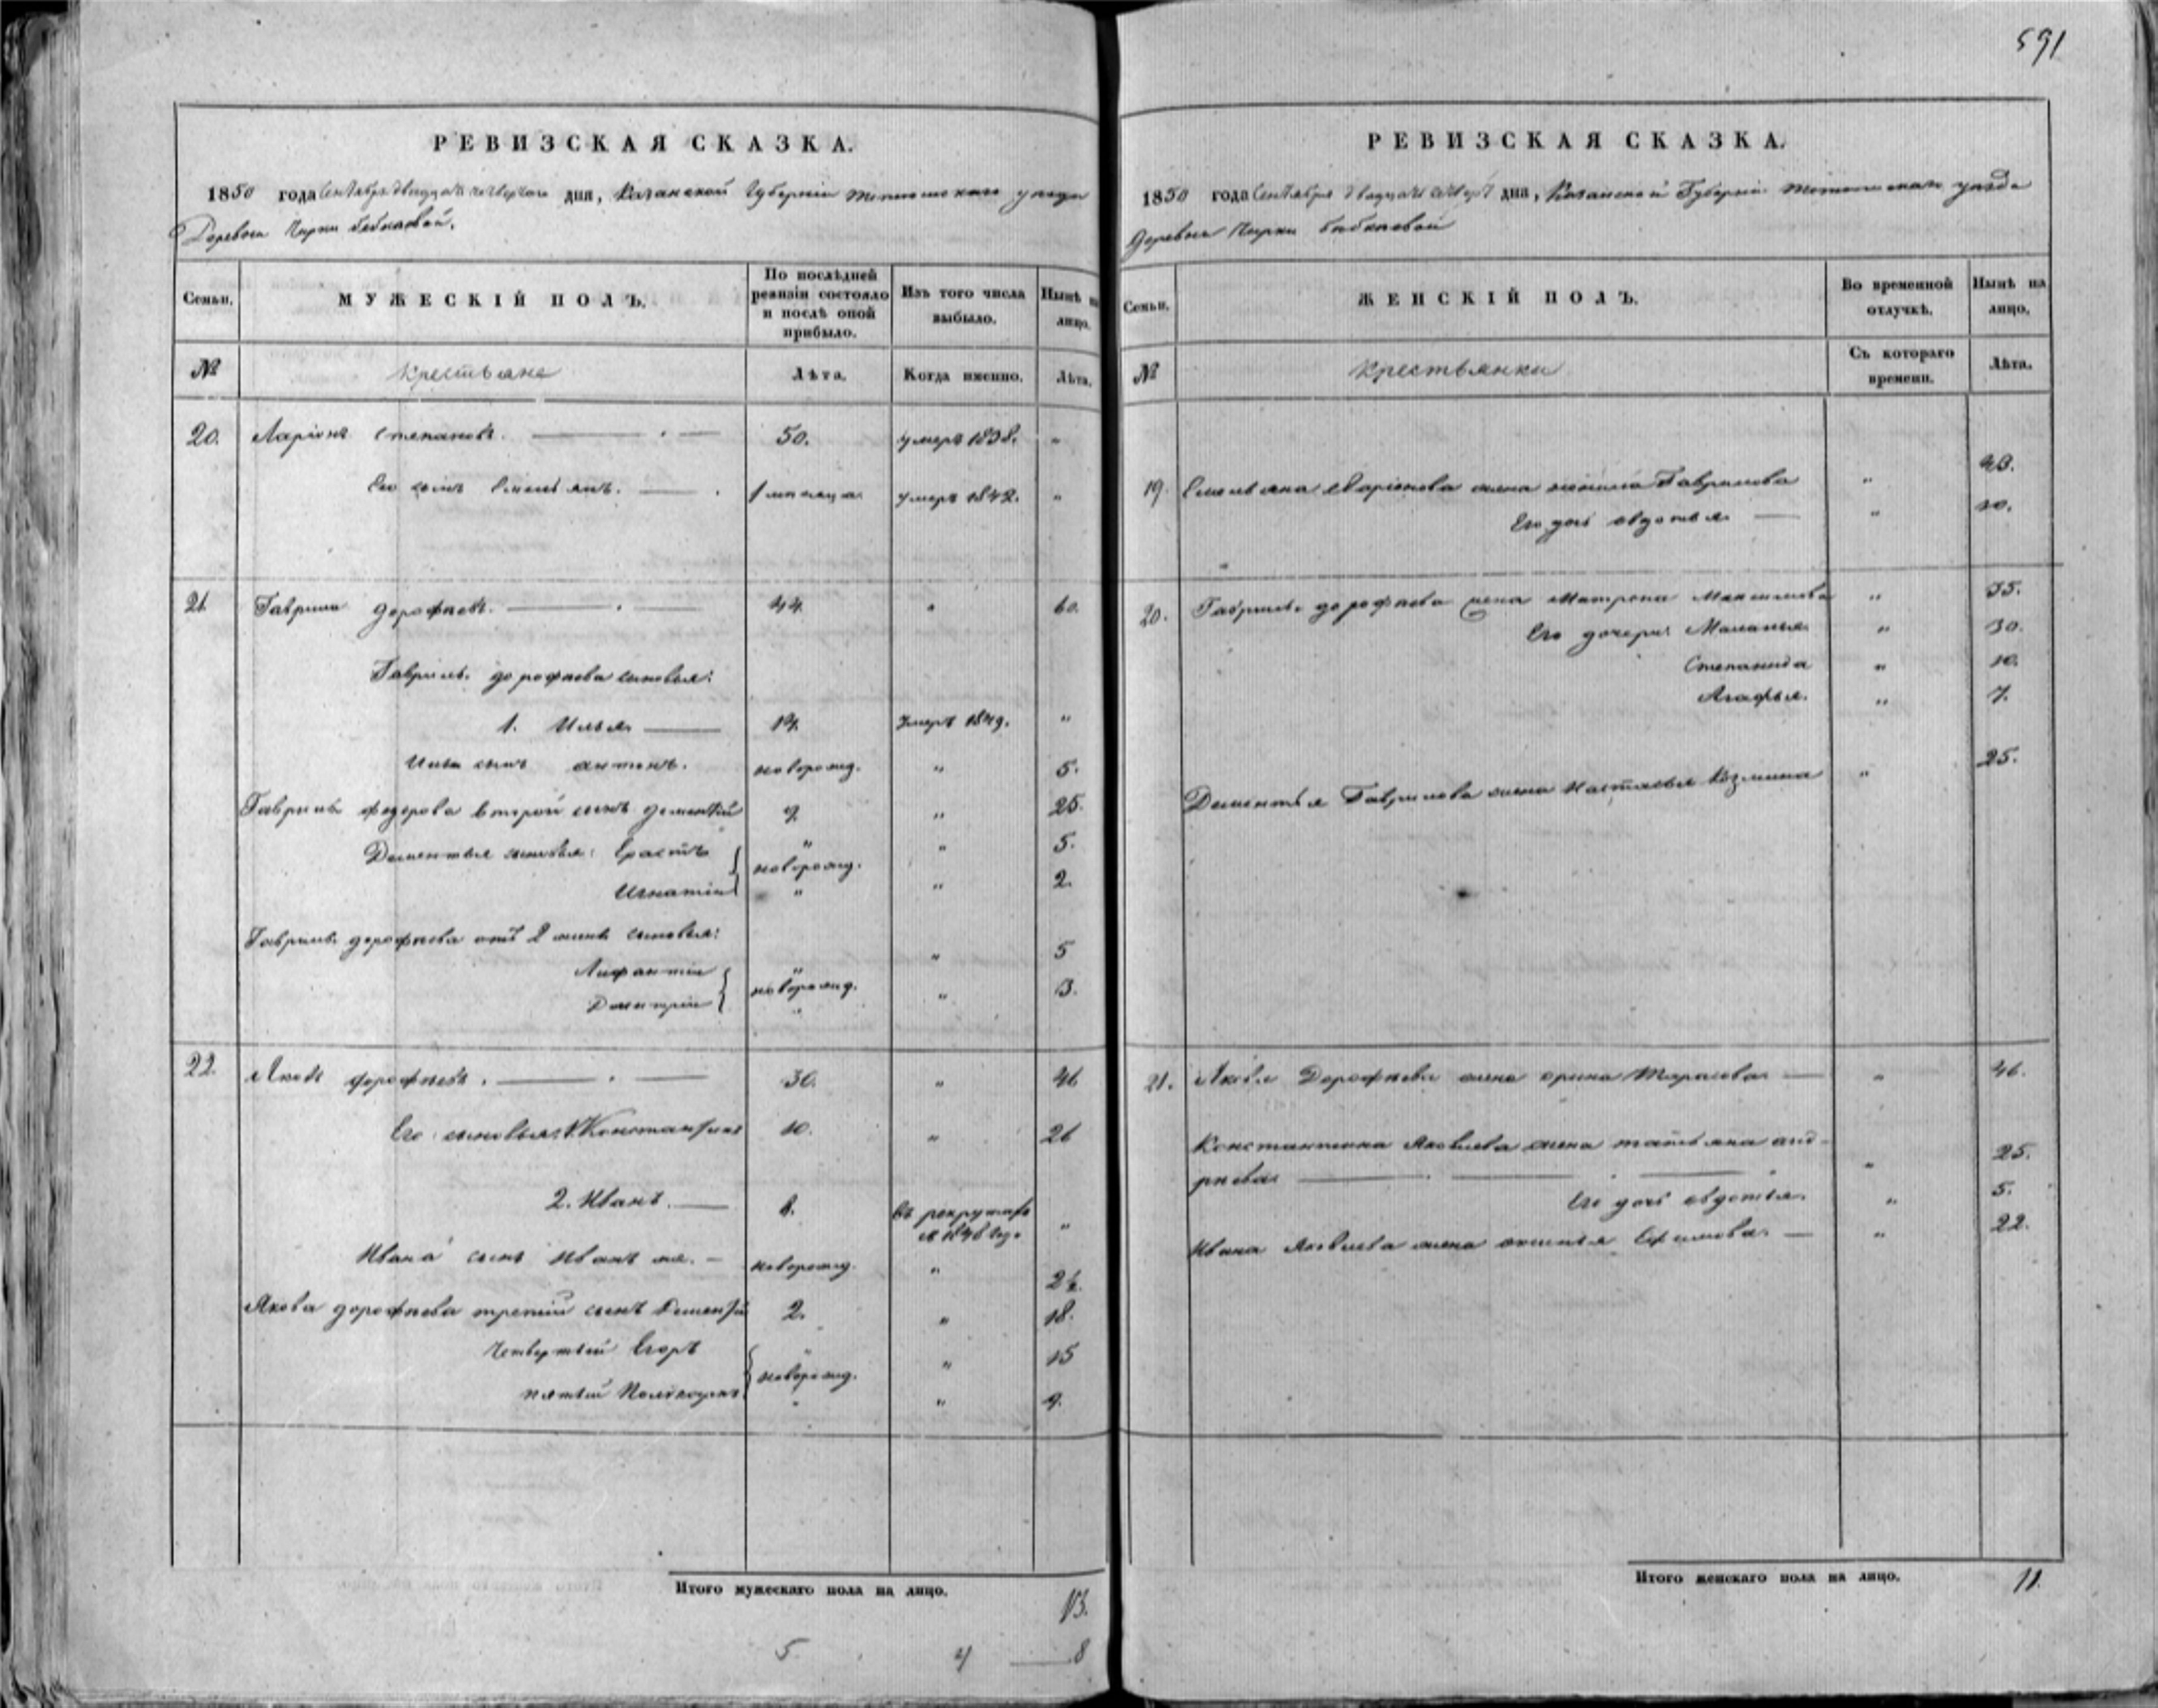 591
РЕВИЗСКАЯ СКАЗКА.
1850 года Сентября двадцать четвертаго дня, Казанской Губернiи уезда
Деревни Чирки
Семьи.
МУЖЕСКІЙ ПОЛЪ.
По послѣдней ревизіи состояло и послѣ оной прибыло.
Изъ того числа выбыло.
Нынѣ на лицо.
№
крестьяне
Лѣта.
Когда именно.
Лѣта.
20. Ларіонъ Степановъ. 50. умеръ 1838. „
Его сынъ Емельянъ. 1 месяца умеръ 1842. „
21 Гаврила Дорофеевъ. 44. „ 60.
Гаврилы Дорофеева сыновья:
1. Илья 14. умеръ 1849. „
Ильи сынъ антонъ. новорожд. „ 5.
Гаврилы второй сынъ Дементiй 9. „ 25
Дементья сыновья: Ерастъ „ „ 5.
новорожд.
Игнатiй „ „ 2.
Гаврилы Дорофеева отъ 2 жены сыновья:
„ „ 5
новорожд.
Дмитрiй „ 3.
22. Яковъ Дорофеевъ. 30. „ 46
Его сыновья: 1. Константинъ 10. „ 26
2. Иванъ. 8. въ рекрутахъ „
Ивана сынъ Иванъ же. новорожд. „
Якова Дорофеева третiй сынъ Дементiй 2. „ 18.
четвертый Егоръ „ „ 15
новорожд.
пятый „ „ 9.
Итого мужескаго пола на лицо.
13.
5 4 8
РЕВИЗСКАЯ СКАЗКА.
1850 года Сентября дня, Казанской Губернiи уезда
Деревни Чирки
Семьи.
ЖЕНСКІЙ ПОЛЪ.
Во временной отлучкѣ.
Нынѣ на лицо.
№
крестьянки
Съ котораго времени.
Лѣта.
19. Емельяна Ларiонова жена Гаврилова „
Его дочь авдотья „ 10.
20. Гаврилы Дорофеева жена Матрена Максимова „ 35.
Его дочери: Маланья „ 30.
Степанида „ 10.
Агафья. „ 7.
Дементья Гаврилова жена Настасья Козмина „ 25.
21. Якова Дорофеева жена орина Тарасова „ 46.
Константина Яковлева жена татьяна анд-
реева „ 25.
Его дочь авдотья. „ 5.
Ивана Яковлева жена Ефимова. „ 22.
Итого женскаго пола на лицо.
11.